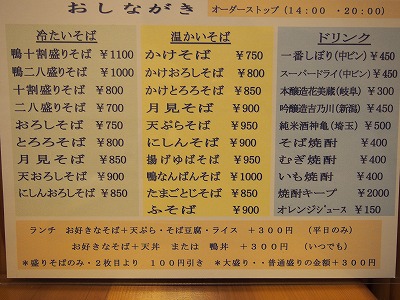 おしながき オーダーストップ(14:00 ・20:00)
冷たいそば
鴨十割盛りそば ¥1100
鴨二八盛りそば ¥1000
十割盛りそば ¥800
二八盛りそば ¥700
おろしそば ¥750
とろろそば ¥800
月見そば ¥850
天おろしそば ¥900
にしんおろしそば ¥850
温かいそば
かけそば ¥750
かけおろしそば ¥800
かけとろろそば ¥850
月見そば ¥900
天ぷらそば ¥950
にしんそば ¥900
揚げゆばそば ¥950
鴨なんばんそば ¥950
たまごとじそば ¥850
ふそば ¥900
ドリンク
一番しぼり(中ビン) ¥450
スーパードライ(中ビン) ¥450
本醸造花美蔵(岐阜) ¥300
吟醸造吉乃川(新潟) ¥450
純米酒神亀(埼玉) ¥500
そば焼酎 ¥400
むぎ焼酎 ¥400
いも焼酎 ¥400
焼酎キープ ¥2000
オレンジジュース ¥150
ランチ お好きなそば+天ぷら・そば豆腐・ライス +300円 (平日のみ)
お好きなそば+天丼 または 鴨丼 +300円 (いつでも)
*盛りそばのみ・2枚目より 100円引き *大盛り・・普通盛りの金額+300円